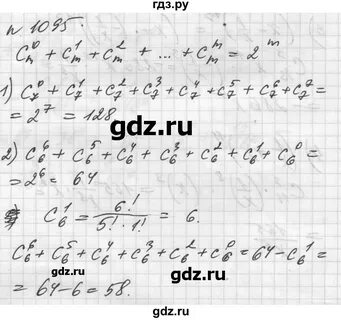 № 1095.
C_m^0 + C_m^1 + C_m^2 + ... + C_m^m = 2^m
1) C_7^0 + C_7^1 + C_7^2 + C_7^3 + C_7^4 + C_7^5 + C_7^6 + C_7^7 =
= 2^7 = 128
гдз.ру
2) C_6^6 + C_6^5 + C_6^4 + C_6^3 + C_6^2 + C_6^1 + C_6^0 =
= 2^6 = 64
C_6^1 = 6! / 5! · 1! = 6.
C_6^6 + C_6^5 + C_6^4 + C_6^3 + C_6^2 + C_6^0 = 64 - C_6^1 =
= 64 - 6 = 58.
гдз.ру